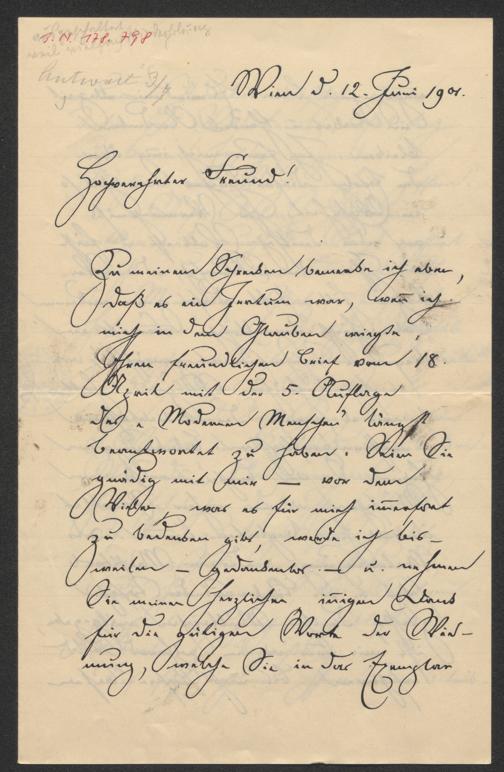 J. N. 178.798
Antwort 3/7
Wien d. 12. Juni 1901.
Hochverehrter Freund!
Zu meinem Schrecken bemerke ich eben,
daß es ein Irrtum war, wen̄ ich
mich in dem Glauben wiegte,
Ihren freundlichen Brief vom 18.
April mit der 5. Auflage
des „Modernen Menschen" längst
beantwortet zu haben. Seien Sie
gnädig mit mir – vor dem
Vielen, was es für mich im̄erfort
zu bedenken gibt, werde ich bis-
weilen – gedankenlos – u. nehmen
Sie meinen herzlichen in̄igen Dank
für die gütigen Worte der Wid-
mung, welche Sie in das Exemplar